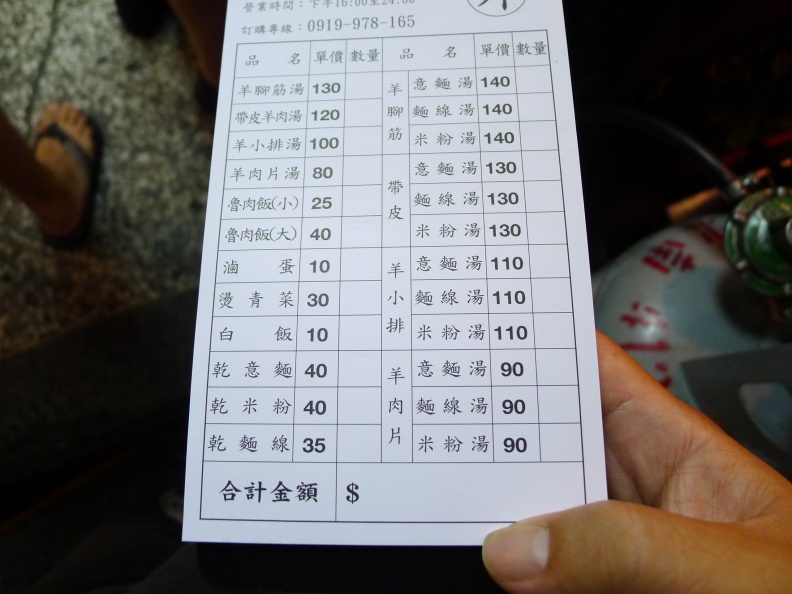 營業時間：下午16:00至24:00
訂購專線：0919-978-165
品名 單價 數量 品名 單價 數量
羊腳筋湯 130 羊腳筋 意麵湯 140
帶皮羊肉湯 120 麵線湯 140
羊小排湯 100 米粉湯 140
羊肉片湯 80 帶皮 意麵湯 130
魯肉飯(小) 25 麵線湯 130
魯肉飯(大) 40 米粉湯 130
滷蛋 10 羊小排 意麵湯 110
燙青菜 30 麵線湯 110
白飯 10 米粉湯 110
乾意麵 40 羊肉片 意麵湯 90
乾米粉 40 麵線湯 90
乾麵線 35 米粉湯 90
合計金額 $